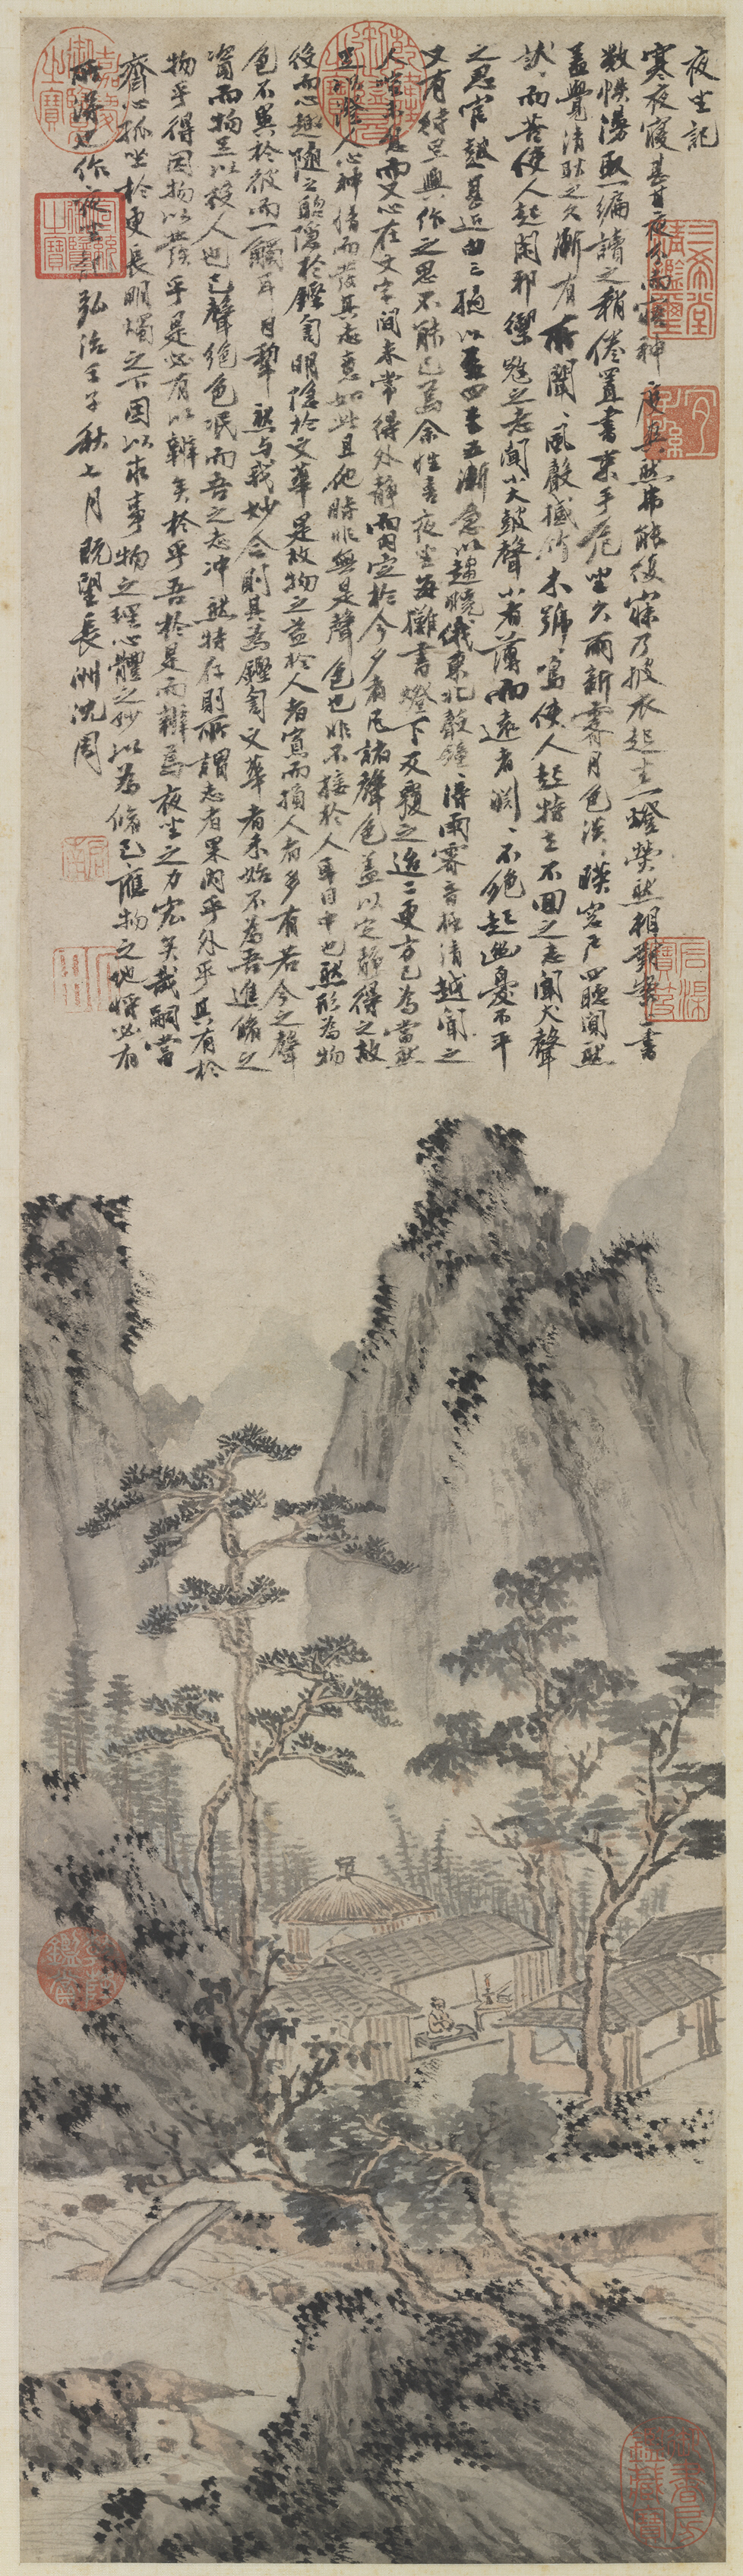 夜坐記
寒夜寢甚甘夜分而寤神度爽然弗能復寐乃披衣起坐一燈熒然相對案上書
數帙漫取一編讀之稍倦置書束手危坐久雨新霽月色淡淡映窗戶四聽闃然
蓋覺清耿之久漸有所聞聞風聲撼竹木號號鳴使人起特立不回之志聞犬聲
狀狀而苦使人起閑邪禦寇之志聞小大鼓聲小者薄而遠者淵淵不絕起幽憂不平
之思官鼓甚近由三撾以至四至五漸急以趨曉俄東北聲鐘鐘得雨霽音極清越聞之
又有待旦興作之思不能已焉余性喜夜坐每攤書燈下反覆之迨二更方已為當然
人喧未息而又心在文字間未常得外靜而內定於今夕者凡諸聲色蓋以定靜得之故
足以澄人心神情而發其志意如此且他時非無是聲色也非不接於人耳目中也然形為物
役而心趣隨之聰隱於鏗訇明隱於文華是故物之益於人者寡而損人者多有若今之聲
色不異於彼而一觸耳目犁然與我妙合則其為鏗訇文華者未始不為吾進修之
資而物足以役人也已聲絕色泯而吾之志冲然特存則所謂志者果內乎外乎其有於
物乎得因物以發乎是必有以辨矣於乎吾於是而辨焉夜坐之力宏矣哉嗣當
齋心孤坐於更長明燭之下因以求事物之理心體之妙以為修己應物之地將必有
所得也作夜坐記弘治壬子秋七月既望長洲沈周
三希堂精鑑璽
宜子孫
石渠寶笈
乾隆御覽之寶
嘉慶御覽之寶
宣統御覽之寶
啟南
乾隆鑑賞
御書房鑑藏寶